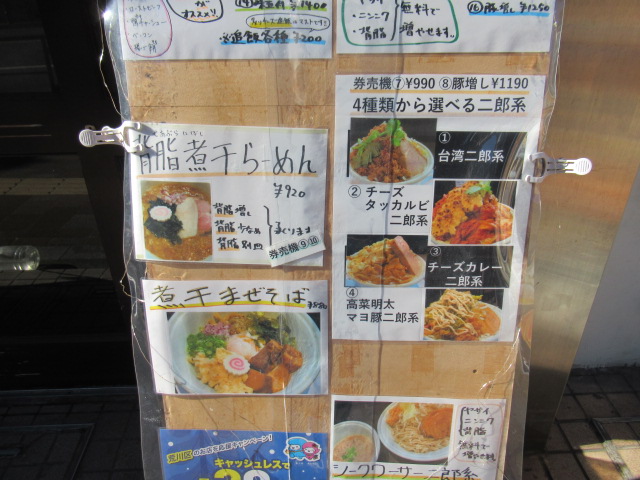 オススメ!!
¥1400
※追飯各種 ¥200
・ニンニク
・背脂
無料で
増やせます。
⑯豚増し ¥1250
券売機⑦¥990 ⑧豚増し¥1190
4種類から選べる二郎系
①
台湾二郎系
② チーズ
タッカルビ
二郎系
③
チーズカレー
二郎系
④
高菜明太
マヨ豚二郎系
背脂煮干らーめん
¥920
背脂増し
背脂少なめ
背脂別皿
券売機⑨・⑩
煮干まぜそば
ヤサイ
ニンニク
背脂
無料で
シークワーサー二郎系
荒川区のお店を応援キャンペーン!
キャッシュレスで